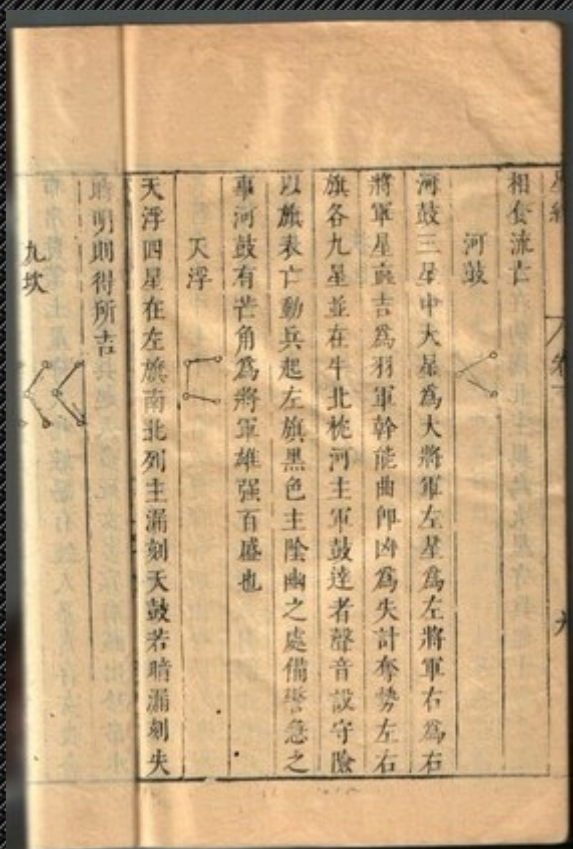 星經 卷下 六
相奎流亡
河鼓
河鼓三星中大星為大將軍左星為左將軍右為右
將軍星直吉為羽軍幹能曲卽凶為失計奪勢左右
旗各九星並在牛北枕河主軍鼓達者聲音設守險
以旗表亡動兵起左旗黑色主陰幽之處備警急之
事河鼓有芒角為將軍雄强百盛也
天浮
天浮四星在左旗南北列主漏刻天鼓若暗漏刻失
明則得所吉
九坎